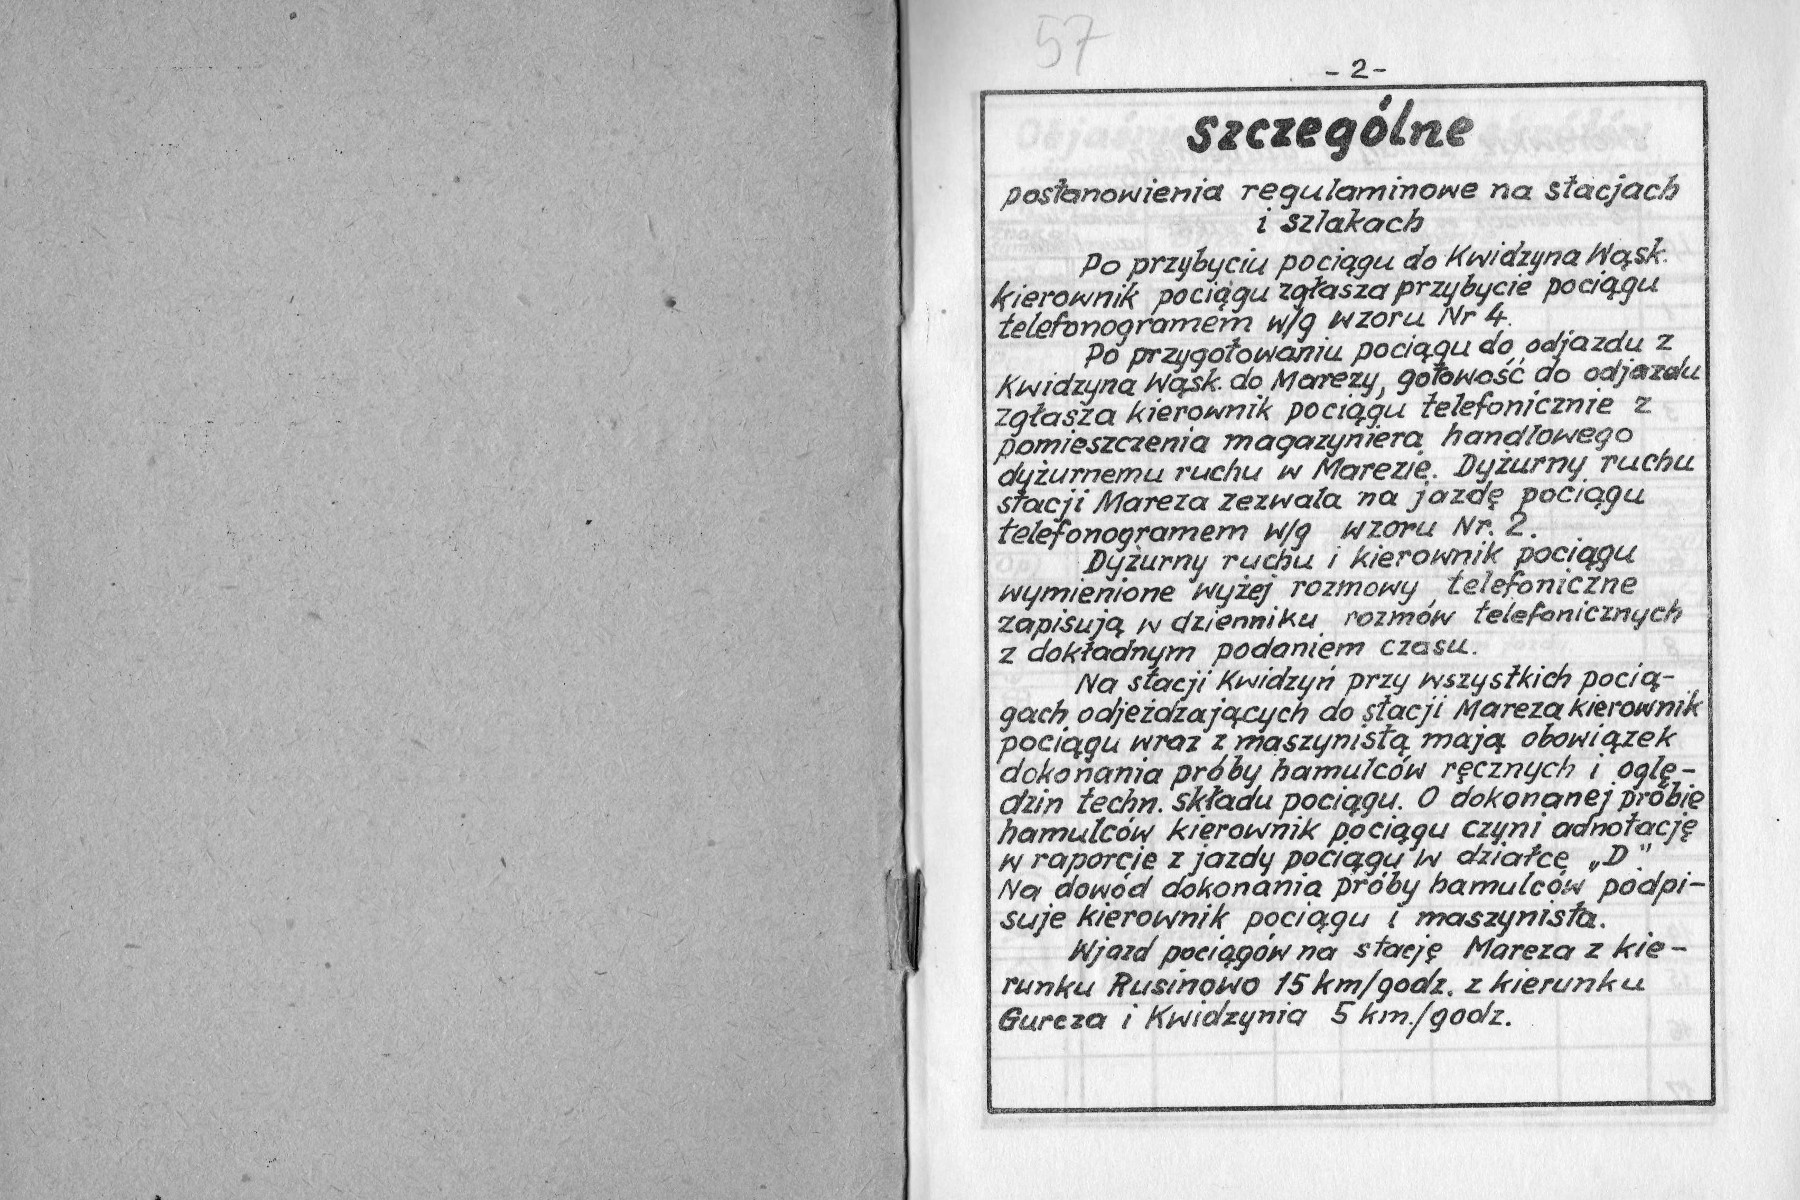 57
- 2 -
szczególne
postanowienia regulaminowe na stacjach
i szlakach
Po przybyciu pociągu do Kwidzyna Wąsk.
kierownik pociągu zgłasza przybycie pociągu
telefonogramem w/g wzoru Nr 4.
Po przygotowaniu pociągu do odjazdu z
Kwidzyna Wąsk. do Marezy, gotowość do odjazdu
zgłasza kierownik pociągu telefonicznie z
pomieszczenia magazyniera handlowego
dyżurnemu ruchu w Marezie. Dyżurny ruchu
stacji Mareza zezwala na jazdę pociągu
telefonogramem w/g wzoru Nr. 2.
Dyżurny ruchu i kierownik pociągu
wymienione wyżej rozmowy telefoniczne
zapisują w dzienniku rozmów telefonicznych
z dokładnym podaniem czasu.
Na stacji Kwidzyń przy wszystkich pocią-
gach odjeżdzających do stacji Mareza kierownik
pociągu wraz z maszynistą mają obowiązek
dokonania próby hamulców ręcznych i oglę-
dzin techn. składu pociągu. O dokonanej próbie
hamulców kierownik pociągu czyni adnotację
w raporcie z jazdy pociągu w działce „D".
Na dowód dokonania próby hamulców podpi-
suje kierownik pociągu i maszynista.
Wjazd pociągów na stację Mareza z kie-
runku Rusinowo 15 km/godz. z kierunku
Gurcza i Kwidzynia 5 km./godz.